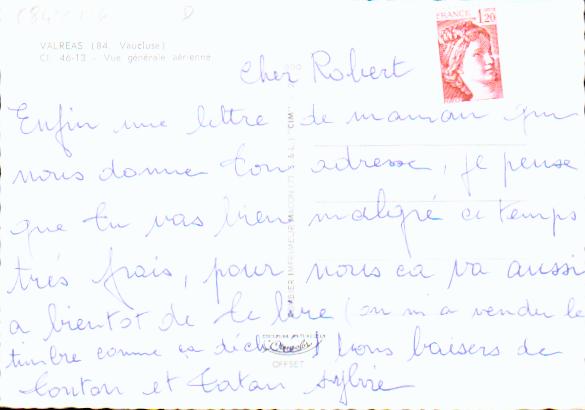 VALREAS (84. Vaucluse)
Cl. 46-13 - Vue générale aérienne
FRANCE 1,20
Cher Robert
Enfin une lettre de maman qui
nous donne ton adresse, je pense
que tu vas bien malgré ce temps
très frais, pour nous ca va aussi
a bientot de te lire (on m'a vendu le
timbre comme ca déchiré) bons baisers de
tonton et tatan Sylvie
OFFSET